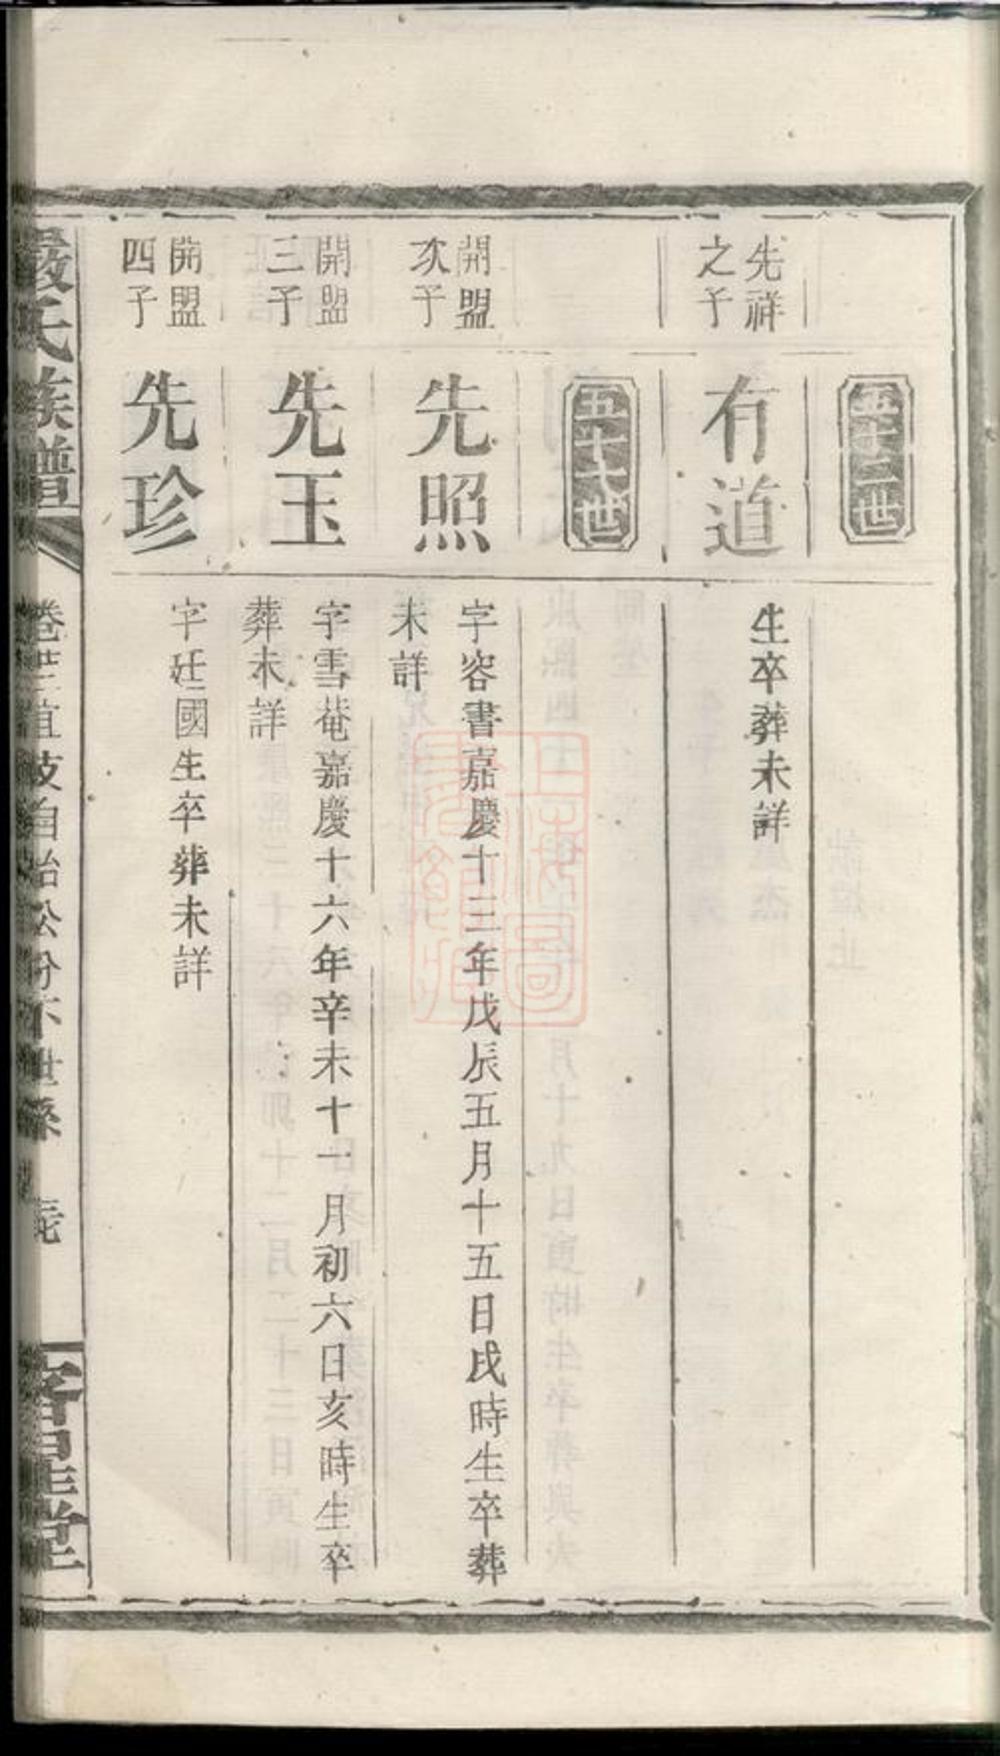 五十二世
先祥
之子
有道
生卒葬未詳
五十七世
開盟
次子
先照
字容書嘉慶十三年戊辰五月十五日戌時生卒葬
未詳
開盟
三子
先玉
字雪菴嘉慶十六年辛未十一月初六日亥時生卒
葬未詳
開盟
四子
先珍
字廷國生卒葬未詳
嚴氏族譜
客星堂